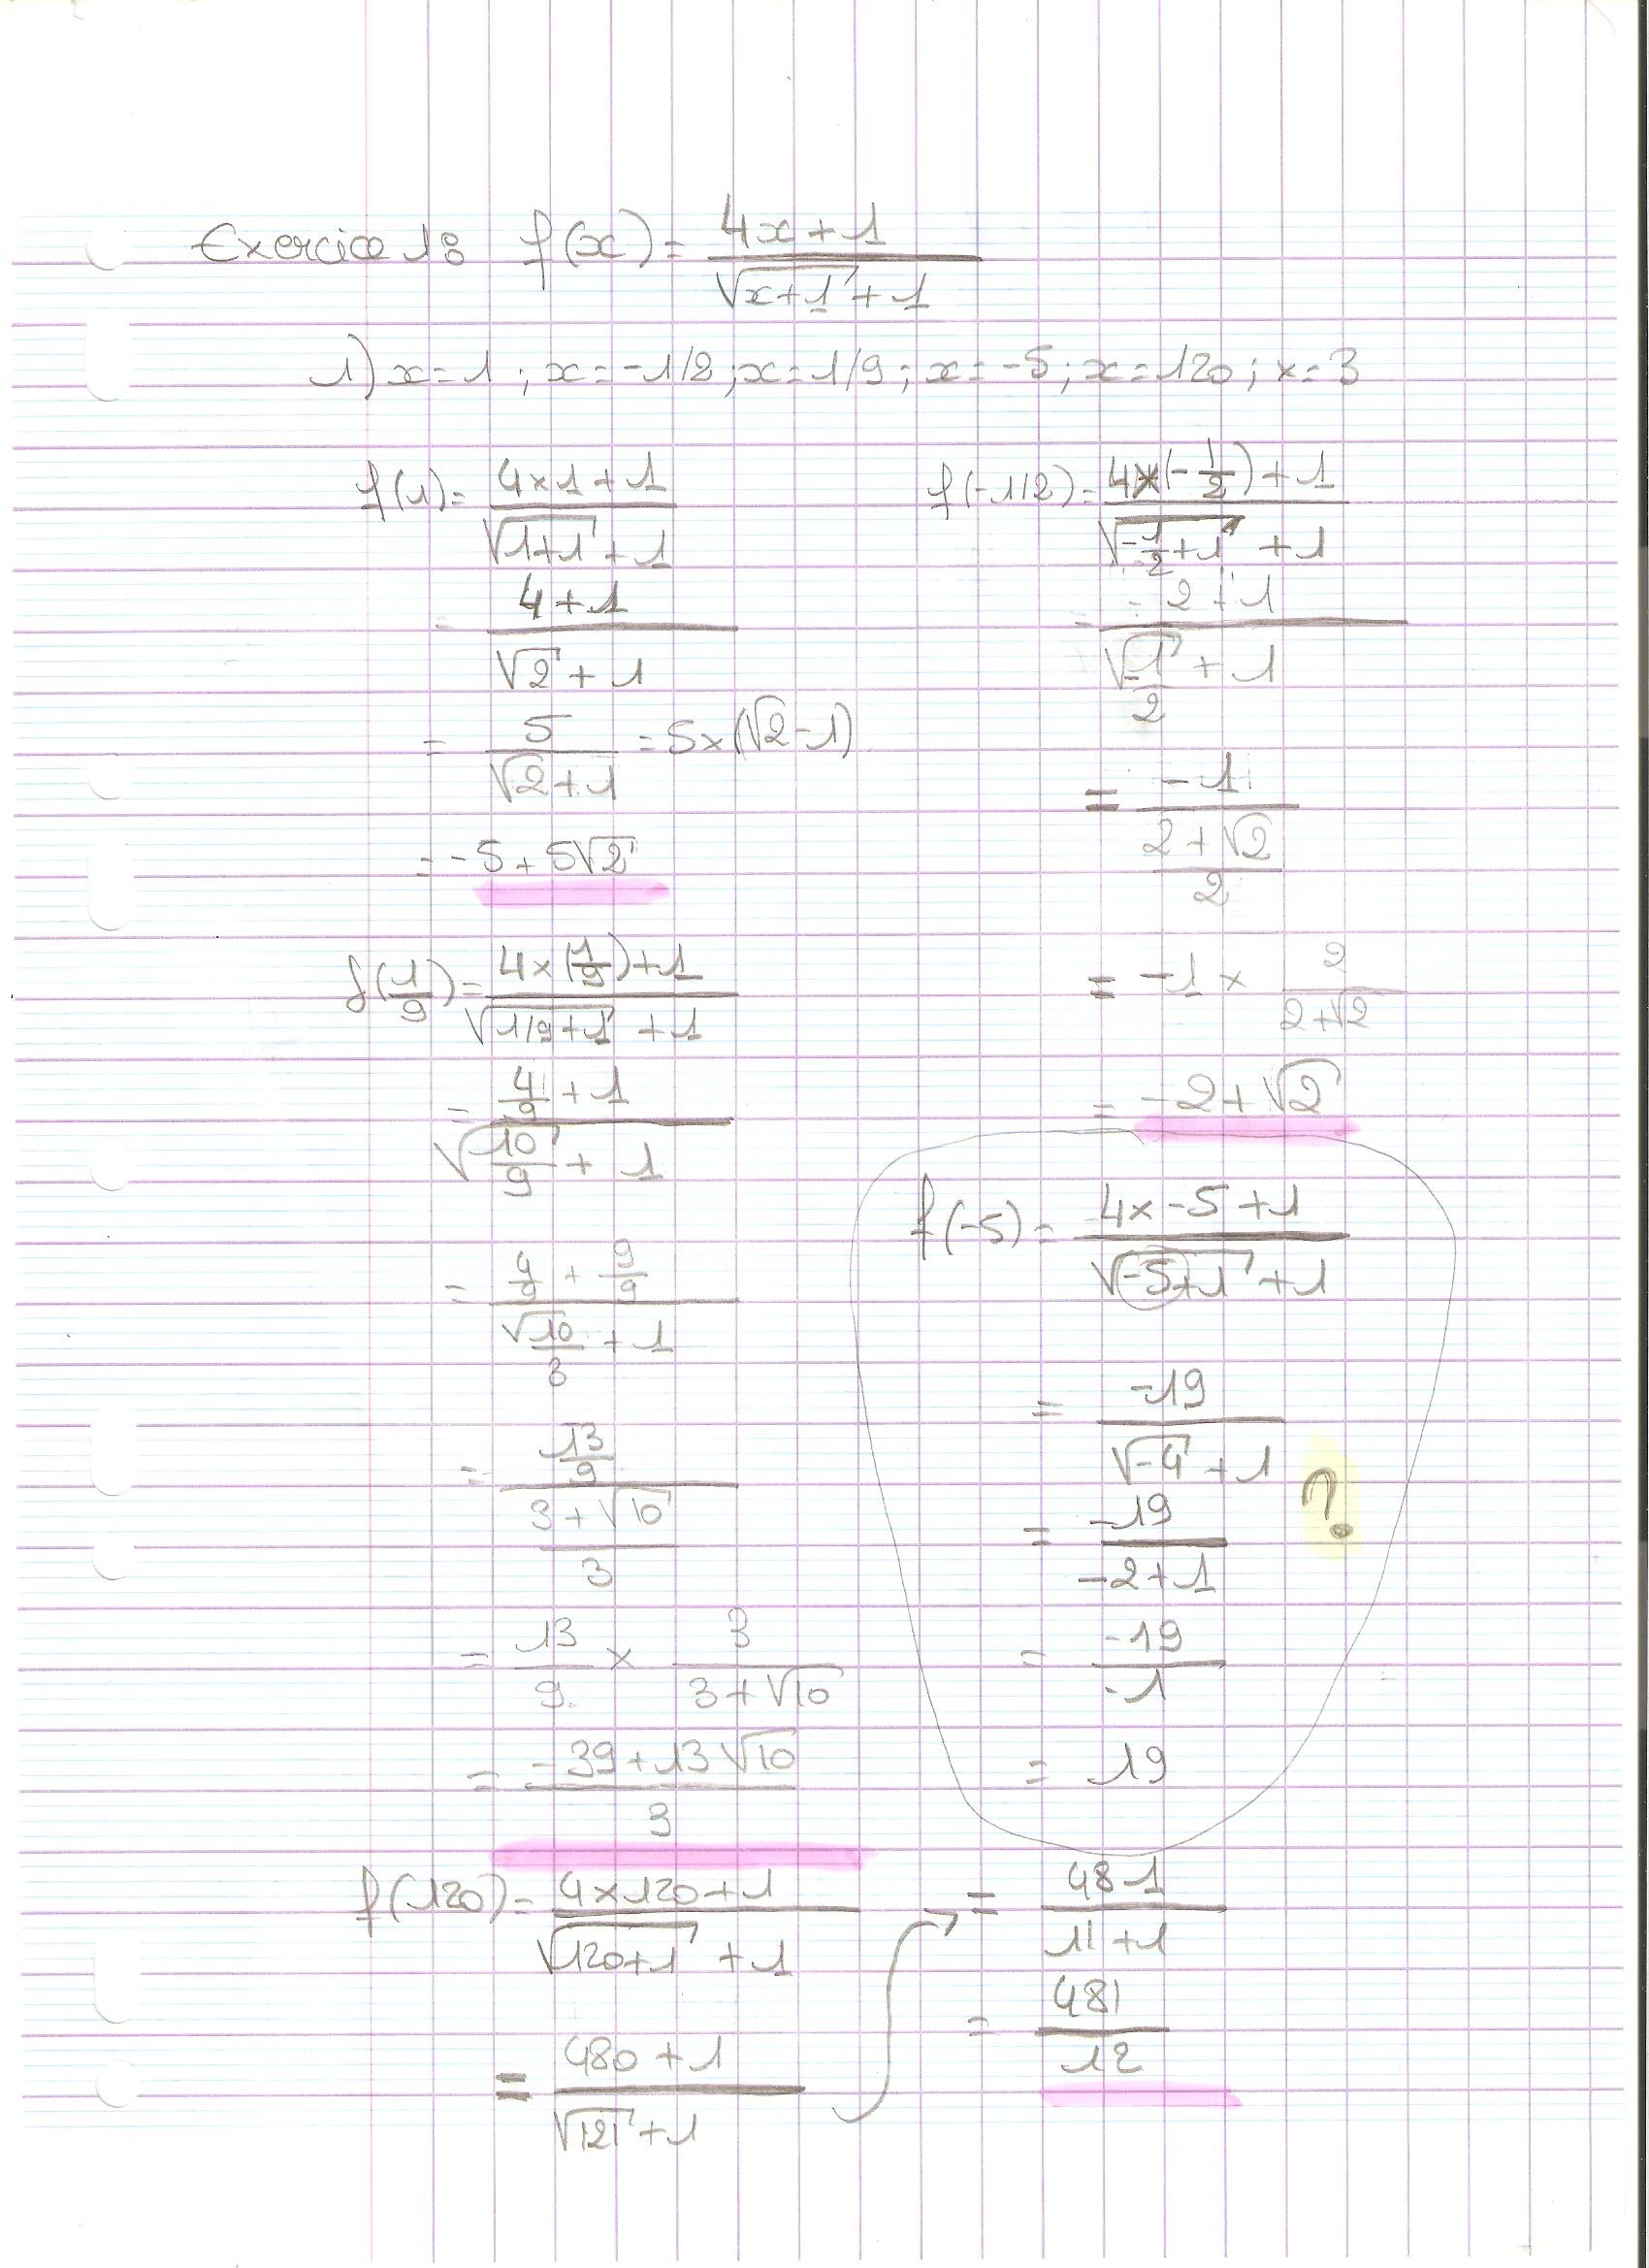 Exercice 18 f(x) = (4x+1)/(√(x+1) + 1)
1) x=1 ; x=-1/2 ; x=1/9 ; x=-5 ; x=120 ; x=3
f(1) = (4×1+1)/(√(1+1) + 1)
= (4+1)/(√2 + 1)
= 5/(√2+1) = 5×(√2-1)
= -5+5√2
f(-1/2) = (4×(-1/2)+1)/(√(-1/2+1) + 1)
= (-2+1)/(√1/2 + 1)
= -1/((2+√2)/2)
= -1 × 2/(2+√2)
= -2+√2
f(1/9) = (4×(1/9)+1)/(√(1/9+1) + 1)
= (4/9 + 1)/(√(10/9) + 1)
= (4/9 + 9/9)/(√10/3 + 1)
= (13/9)/((3+√10)/3)
= 13/9 × 3/(3+√10)
= (-39+13√10)/3
f(-5) = (4×-5+1)/(√(-5+1) + 1)
= -19/(√-4 + 1)
?
= -19/(-2+1)
= -19/-1
= 19
f(120) = (4×120+1)/(√(120+1) + 1)
= (480+1)/(√121 + 1)
= 481/(11+1)
= 481/12